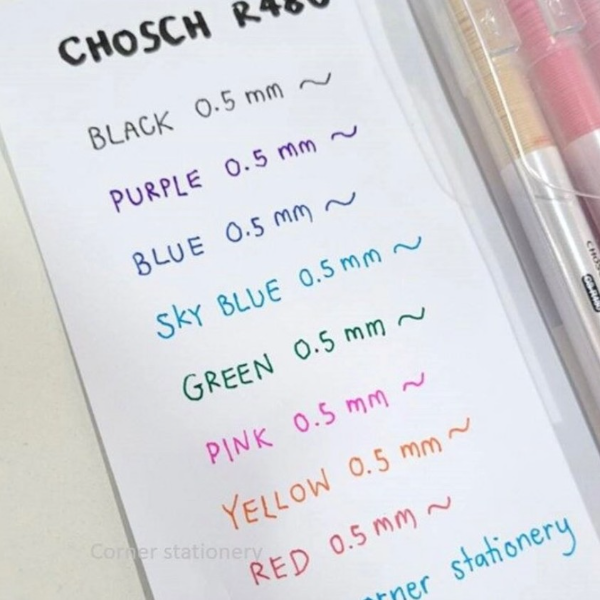 CHOSCH R480
BLACK 0.5 mm ~
PURPLE 0.5 mm ~
BLUE 0.5 mm ~
SKY BLUE 0.5 mm ~
GREEN 0.5 mm ~
PINK 0.5 mm ~
YELLOW 0.5 mm ~
RED 0.5 mm ~
Corner stationery
orner stationery